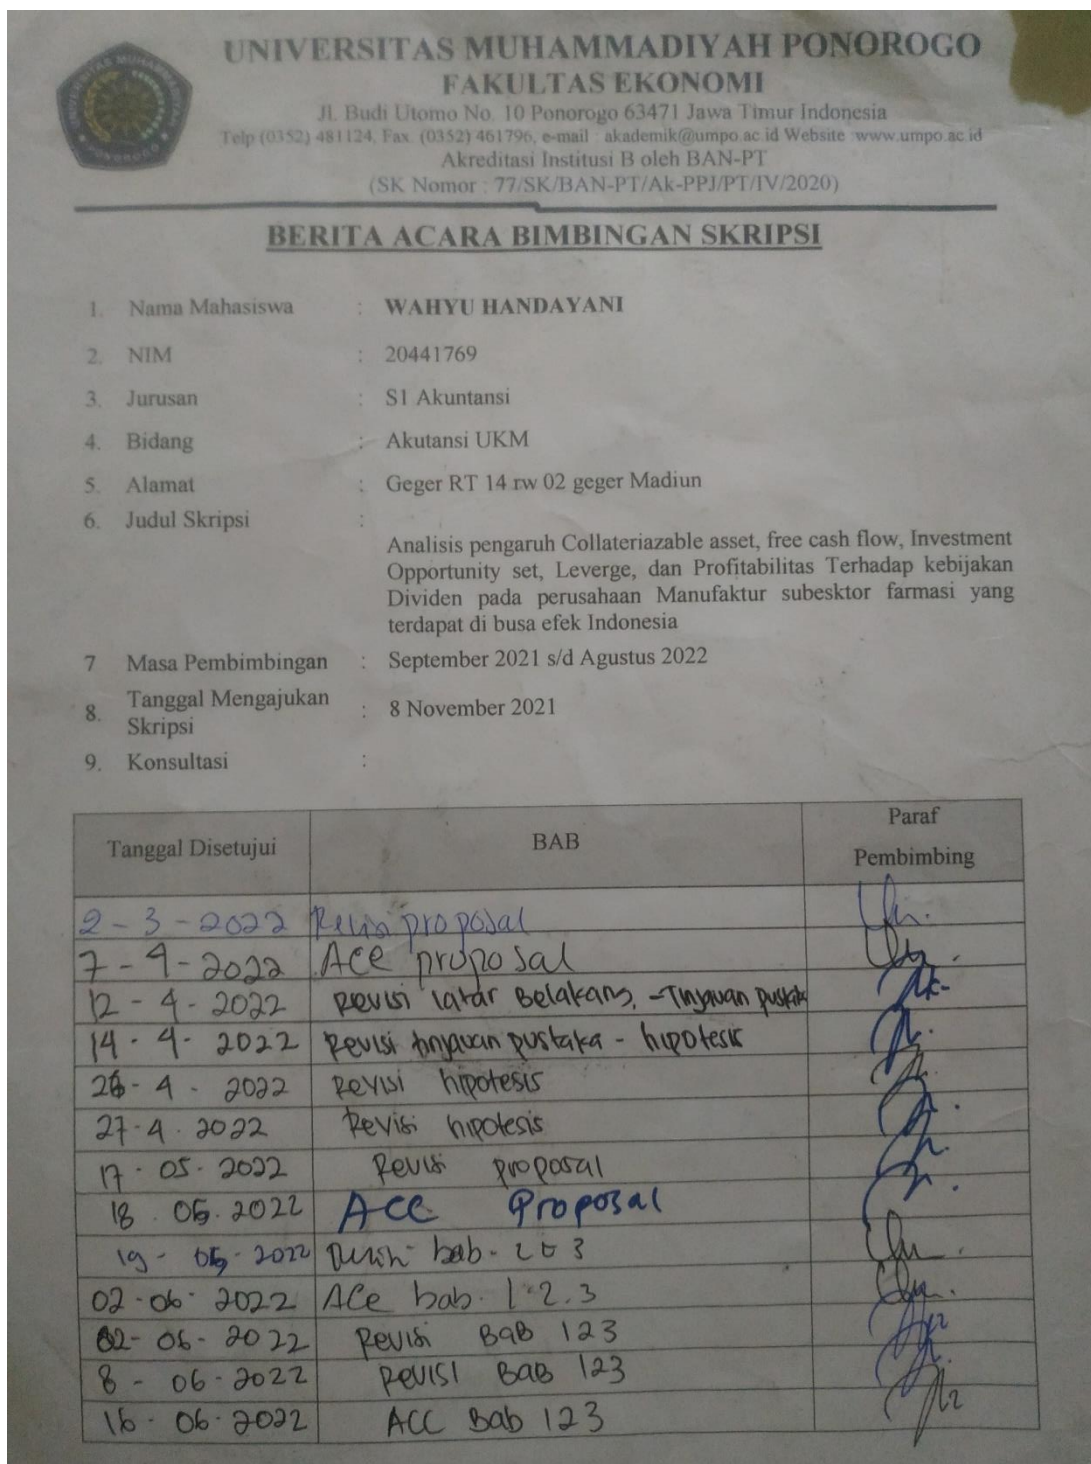 UNIVERSITAS MUHAMMADIYAH PONOROGO
FAKULTAS EKONOMI
Jl. Budi Utomo No. 10 Ponorogo 63471 Jawa Timur Indonesia
Telp (0352) 481124, Fax. (0352) 461796, e-mail : akademik@umpo.ac.id Website :www.umpo.ac.id
Akreditasi Institusi B oleh BAN-PT
(SK Nomor : 77/SK/BAN-PT/Ak-PPJ/PT/IV/2020)
BERITA ACARA BIMBINGAN SKRIPSI
1. Nama Mahasiswa : WAHYU HANDAYANI
2. NIM : 20441769
3. Jurusan : S1 Akuntansi
4. Bidang : Akutansi UKM
5. Alamat : Geger RT 14 rw 02 geger Madiun
6. Judul Skripsi :
Analisis pengaruh Collateriazable asset, free cash flow, Investment
Opportunity set, Leverge, dan Profitabilitas Terhadap kebijakan
Dividen pada perusahaan Manufaktur subesktor farmasi yang
terdapat di busa efek Indonesia
7 Masa Pembimbingan : September 2021 s/d Agustus 2022
8. Tanggal Mengajukan Skripsi : 8 November 2021
9. Konsultasi :
Tanggal Disetujui BAB Paraf Pembimbing
2 - 3 - 2022 proposal
7 - 4 - 2022 Acc proposal
12 - 4 - 2022 Revisi latar Belakang, - Tinjauan pustaka
14 - 4 - 2022 Revisi tinjauan pustaka - hipotesis
26 - 4 - 2022 Revisi hipotesis
27 - 4 - 2022 Revisi hipotesis
17 - 05 - 2022 Revisi proposal
18 . 05 . 2022 ACC Proposal
19 - 05 - 2022 bab - 2 & 3
02 - 06 - 2022 ACC bab. 1. 2. 3
02 - 06 - 2022 Revisi BAB 123
8 - 06 - 2022 REVISI BAB 123
16 - 06 - 2022 ACC Bab 123